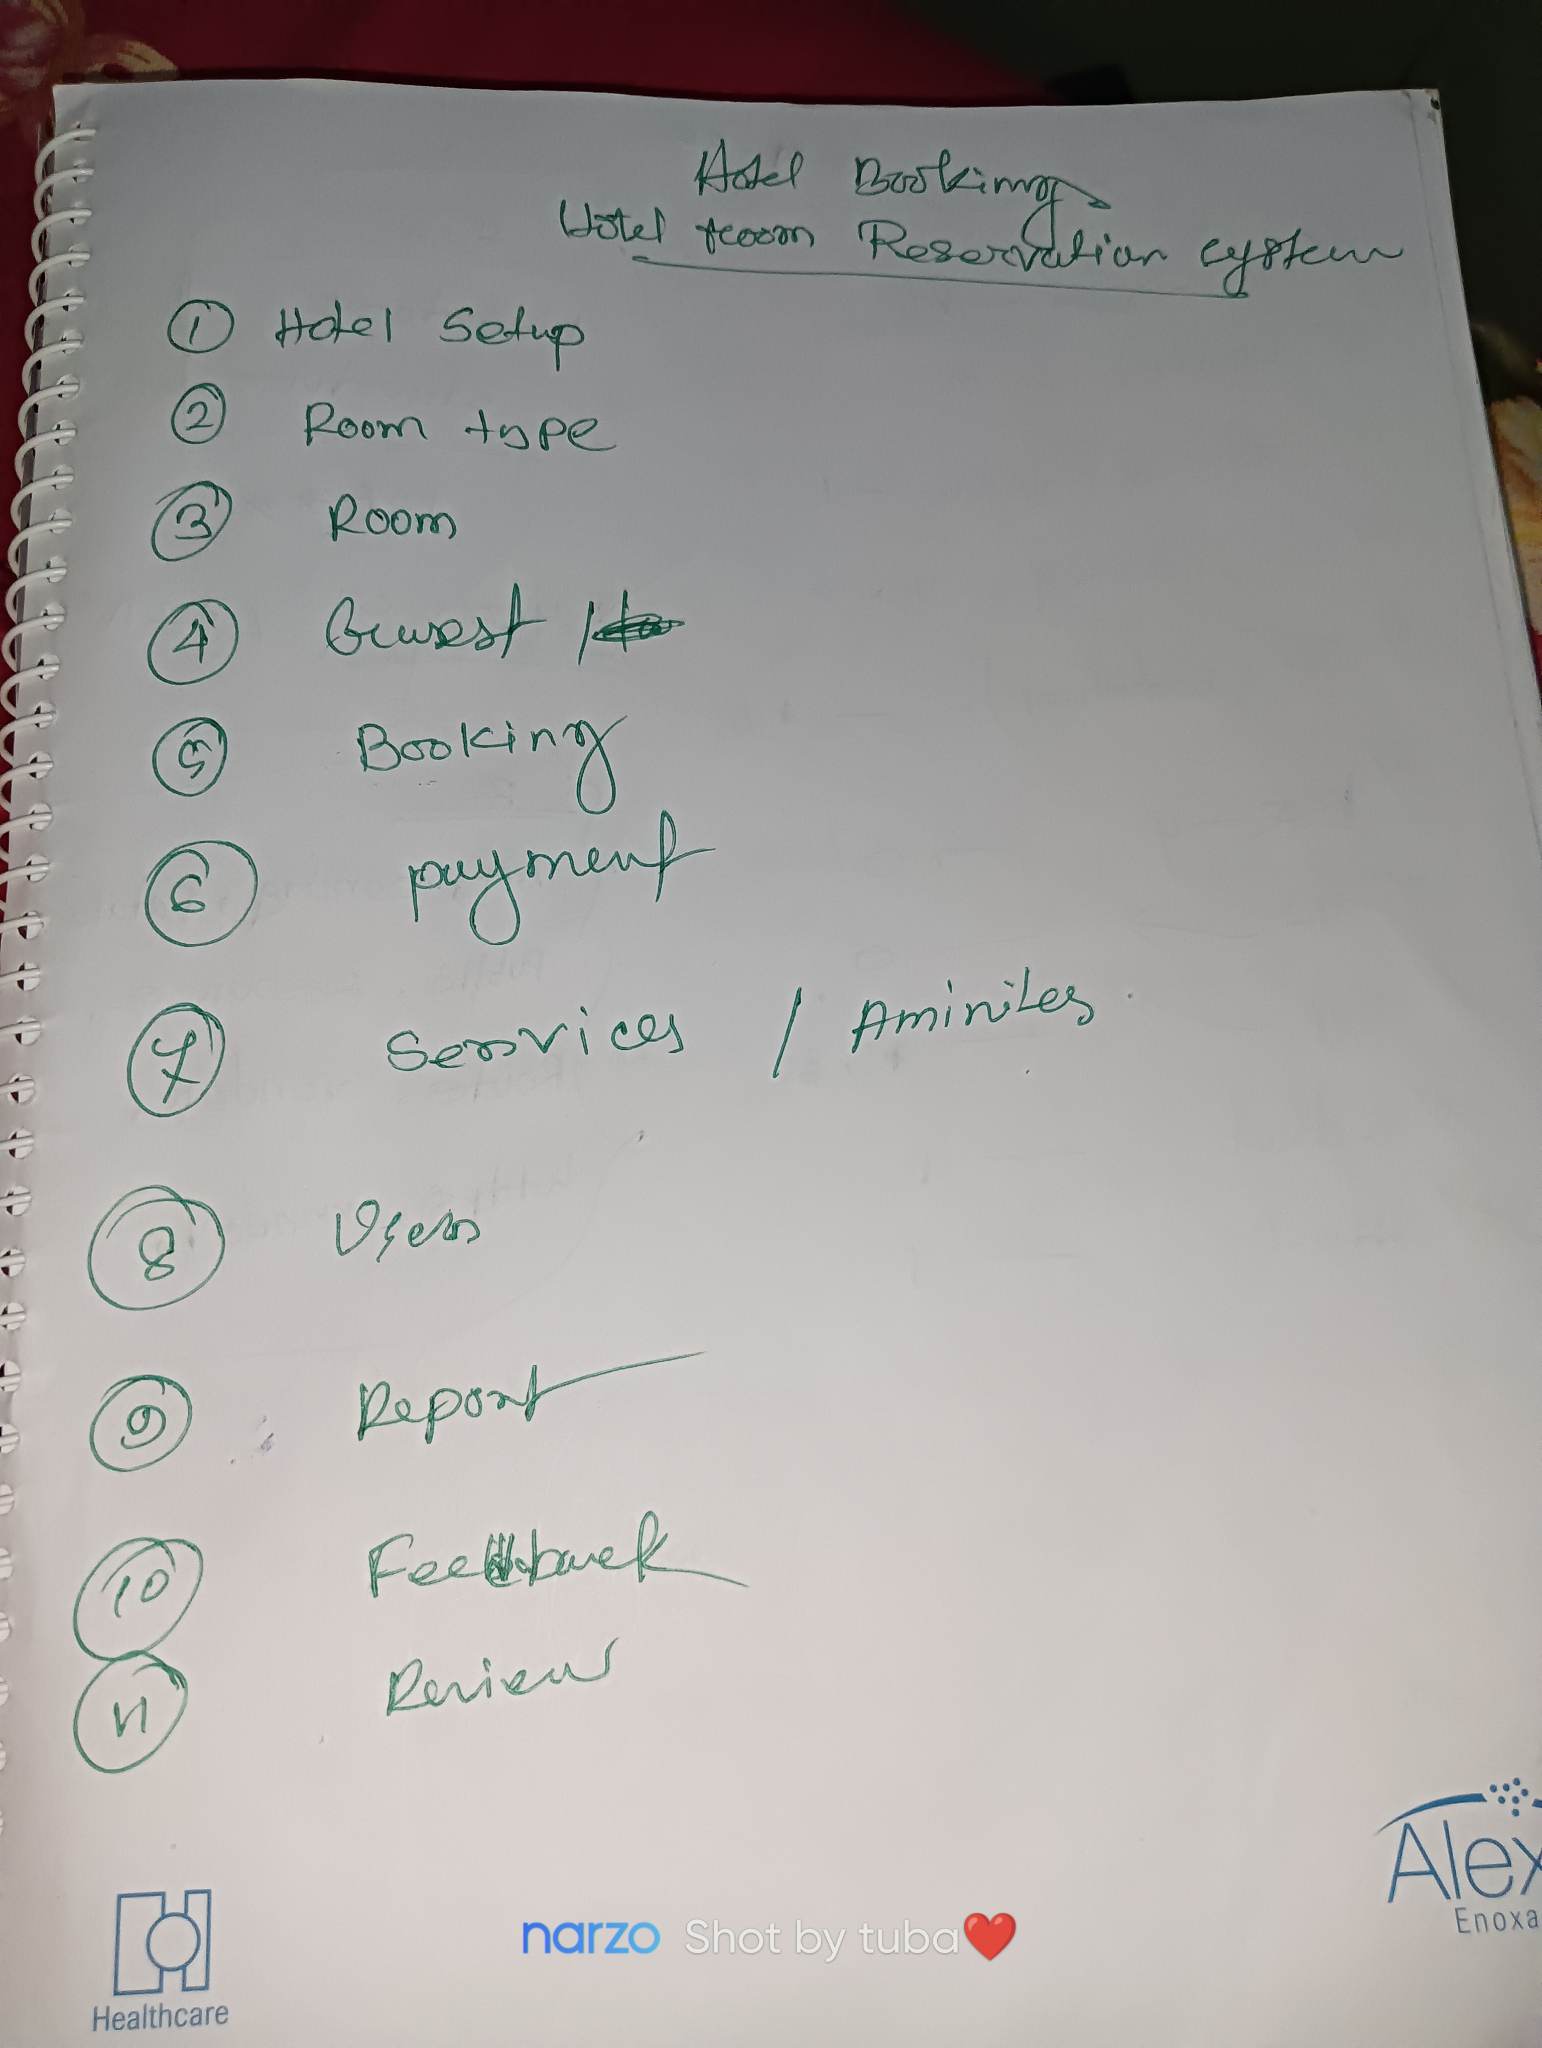 Hotel Booking
Hotel room Reservation system
1 Hotel Setup
2 Room type
3 Room
4 Guest /
5 Booking
6 payment
7 Services / Aminites
8 Users
9 Report
10 Feedback
11 Review
Alex
Enoxa
narzo Shot by tuba❤️
Healthcare